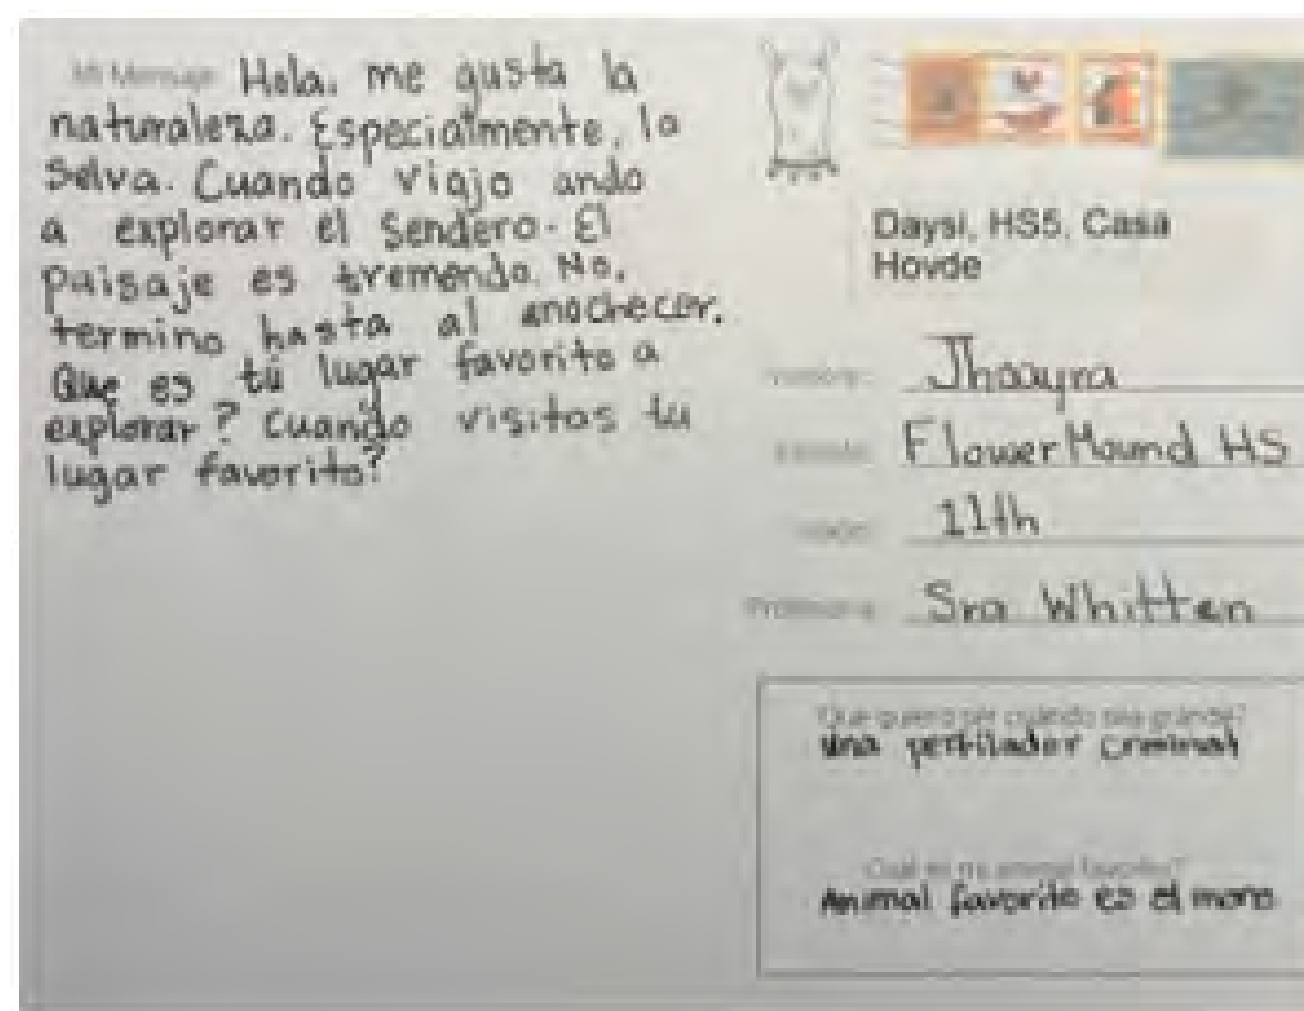 Mi Mensaje Hola, me gusta la
naturaleza. Especialmente, la
selva. Cuando viajo ando
a explorar el sendero. El
paisaje es tremendo. No.
termino hasta al anochecer.
Que es tú lugar favorito a
explorar? Cuando visitas tu
lugar favorito?
Daysi, HS5, Casa
Hovde
Jhoayra
FlowerMound HS
11th
Profesor-a: Sra Whitten
Que quiero ser cuándo sea grande?
una perfilador criminal
Cuál es mi animal favorito?
Animal favorito es el mono